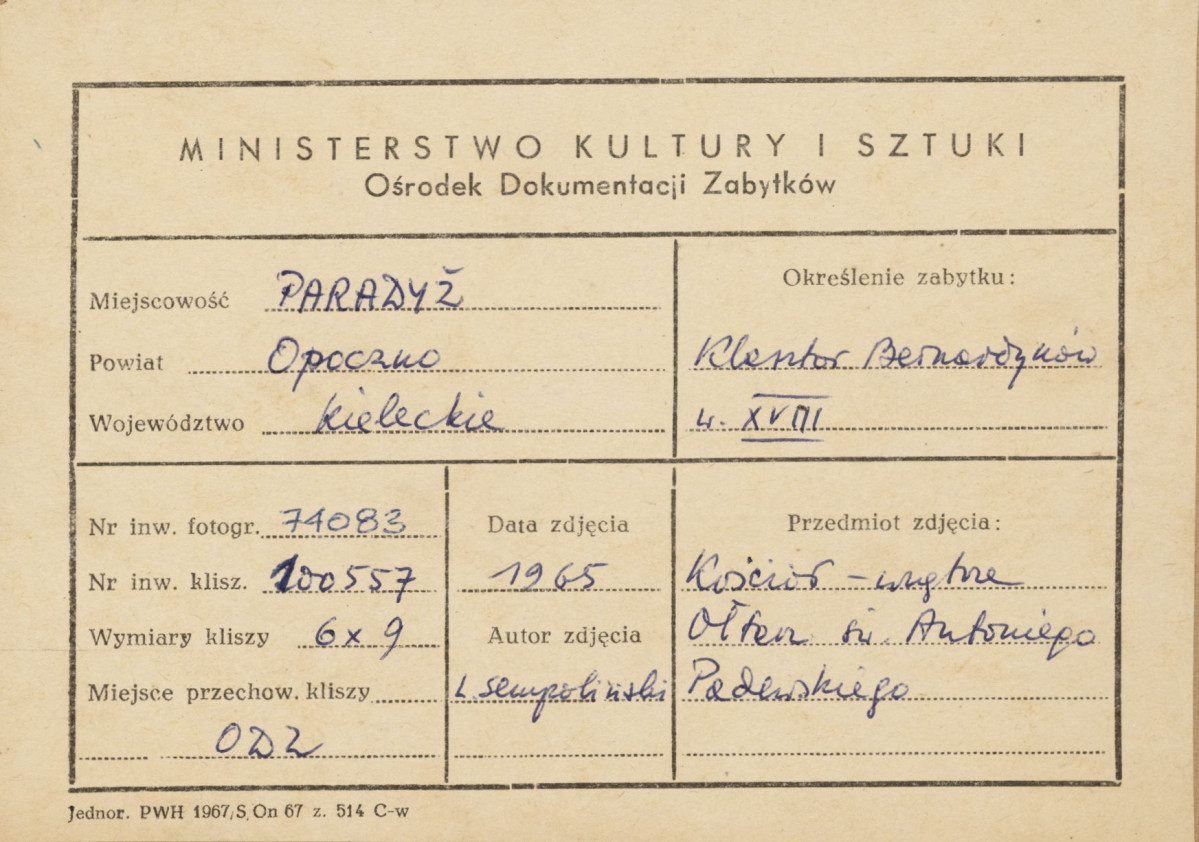 MINISTERSTWO KULTURY I SZTUKI
Ośrodek Dokumentacji Zabytków
Miejscowość PARADYŻ
Powiat Opoczno
Województwo kieleckie
Określenie zabytku:
Klasztor Bernardynów
w. XVIII
Nr inw. fotogr. 74083
Nr inw. klisz. 100557
Wymiary kliszy 6x9
Miejsce przechow. kliszy
ODZ
Data zdjęcia
1965
Autor zdjęcia
L. Sempoliński
Przedmiot zdjęcia:
Kościół - wnętrze
Ołtarz św. Antoniego
Padewskiego
Jednor. PWH 1967/S, On 67 z. 514 C-w